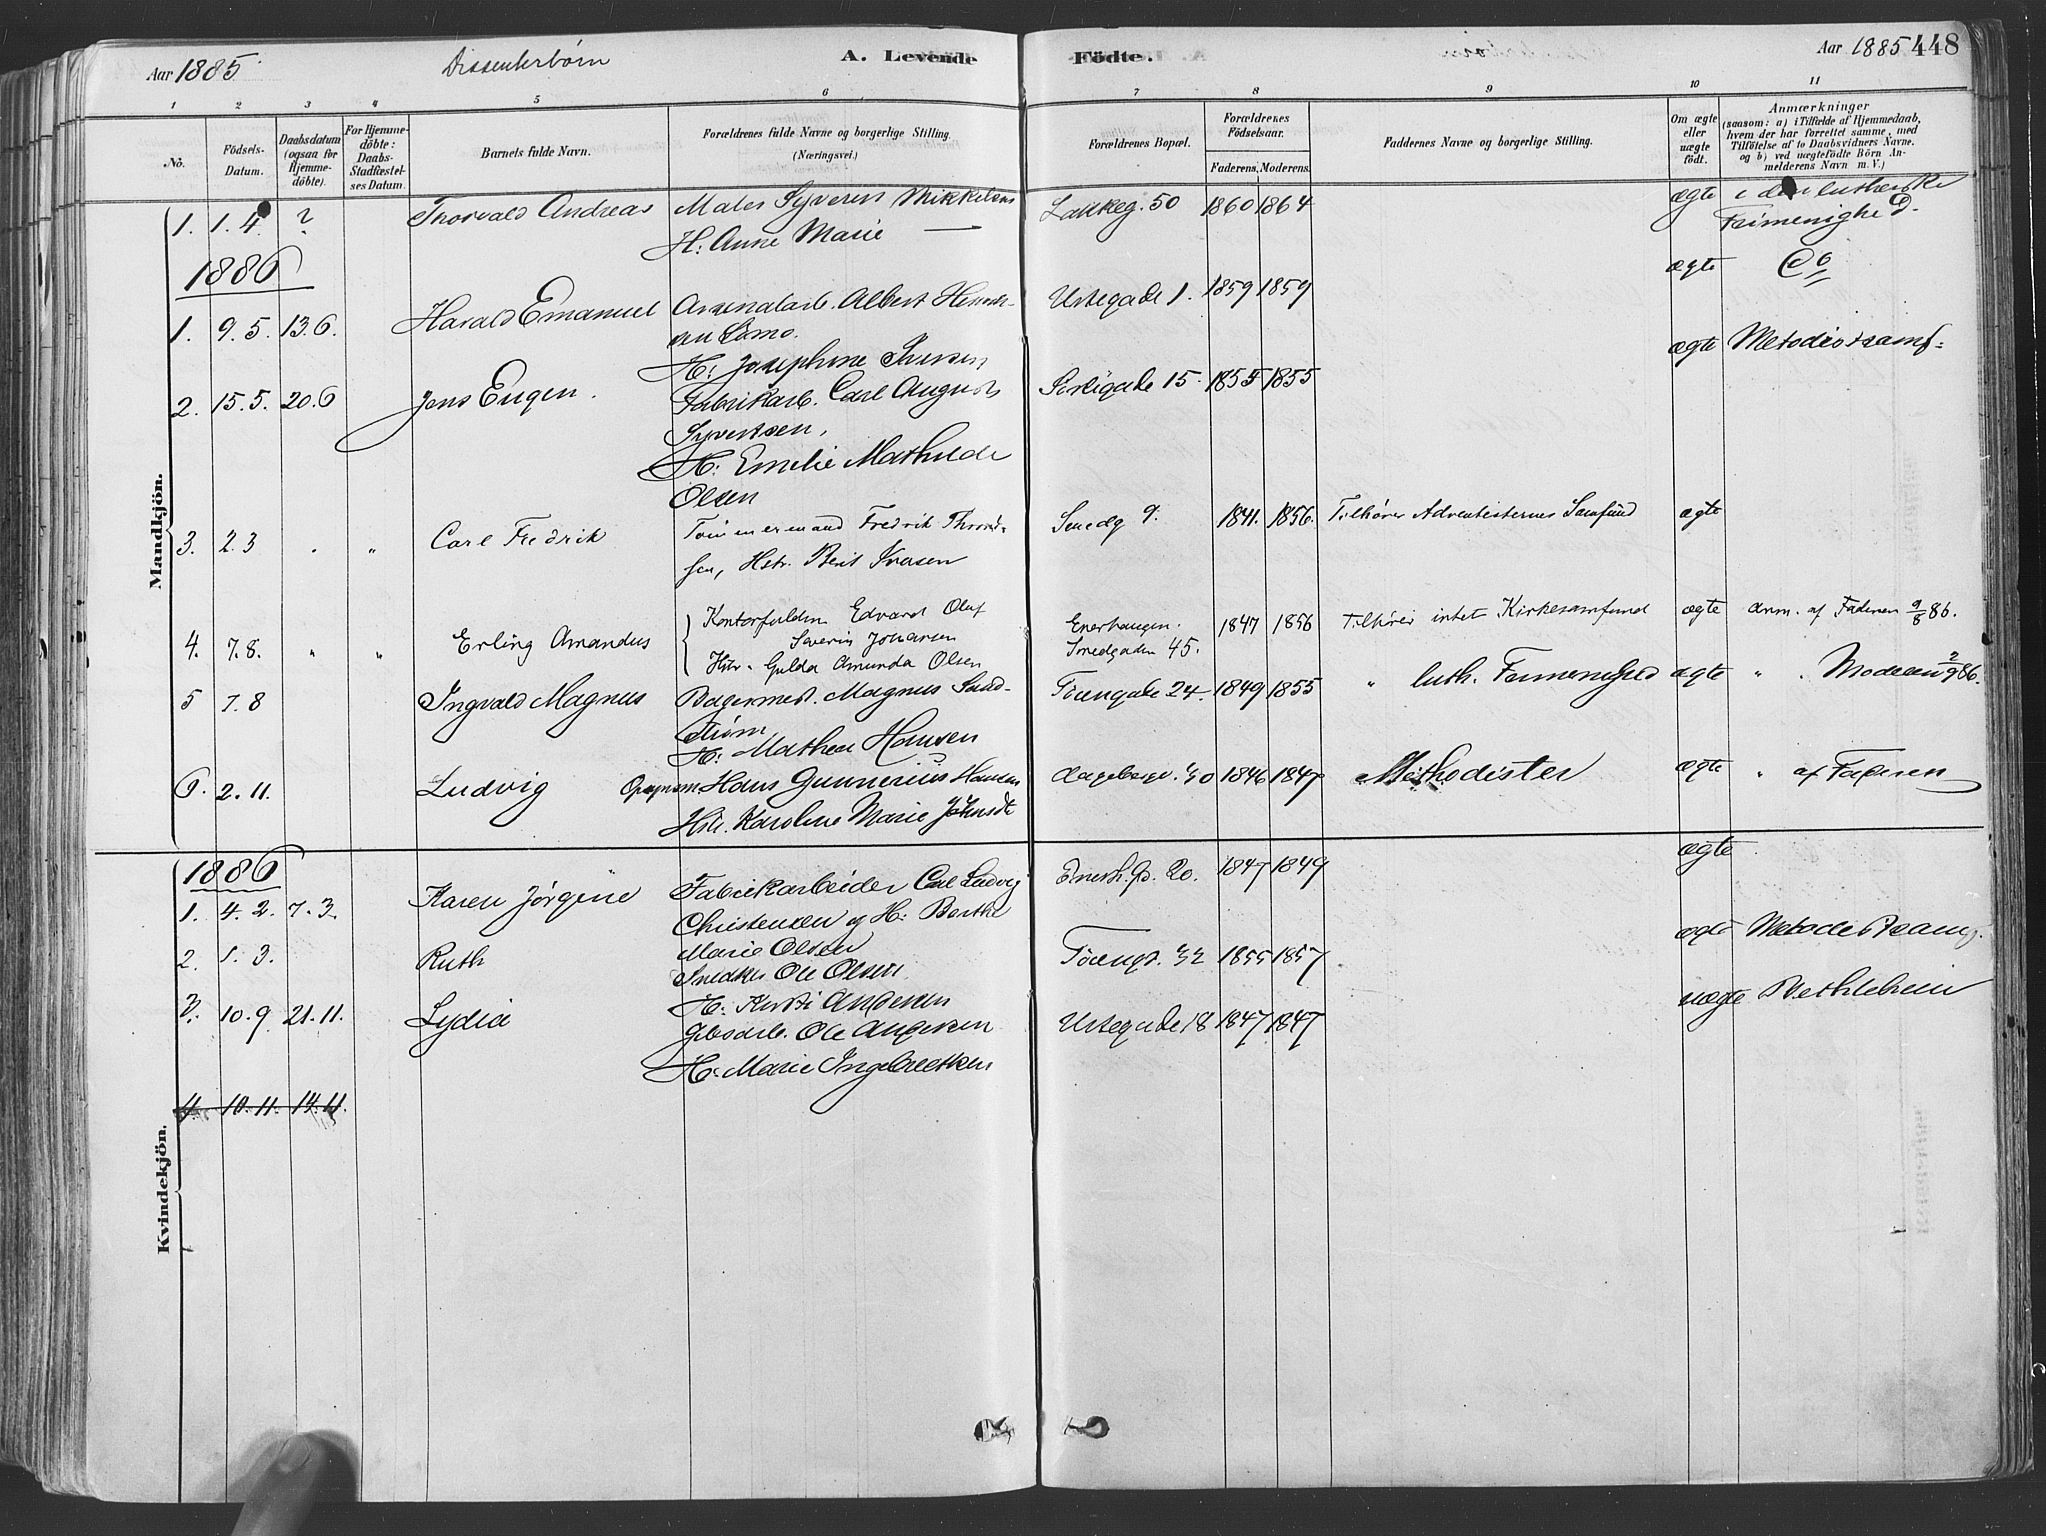 Aar 1885. Dissenterbørn A. Levende Födte. Aar 1885 448
1 2 3 4 5 6 7 8 9 10 11
No.
Födsels-Datum.
Daabsdatum (ogsaa for Hjemme-döbte).
For Hjemme-döbte: Daabs-Stadfæstel-ses Datum.
Barnets fulde Navn.
Forældrenes fulde Navne og borgerlige Stilling.
(Næringsvei.)
Forældrenes Bopæl.
Forældrenes Födselsaar.
Faderens. Moderens.
Faddernes Navne og borgerlige Stilling.
Om ægte eller uægte födt.
Anmærkninger
(saasom: a) i Tilfælde af Hjemmedaab,
hvem der har forrettet samme, med
Tilföielse af to Daabsvidners Navne.
og b) ved uægtefödte Börn An-
melderens Navn m. V.)
Mandkjön.
1. 1.4. ? Thorvald Andreas Maler Syveren Mikkelsen Lakkeg. 50 1860 1864 ægte i den lutherske
H: Anne Marie — Frimenighed.
1886
ægte Do
1. 9.5. 13.6. Harald Emanuel Arsenalarb. Albert Henrik- Urtegade 1. 1859 1859
sen
H: Josephine Iversen ægte Metodistsamf:
2. 15.5. 20.6 Jens Eugen. Fabrikarb. Carl August 15. 1855 1855
Syvertsen,
H: Emilie Mathilde
Olsen
3. 2.3 . " Carl Fredrik Tømmermand Fredrik Thorvald- Smedg 9. 1841. 1856. Tilhører Adventisternes Samfund ægte
sen, Hstr. Berit Ivarsen
4. 7.8. " " Erling Amandus Kontorfuldm Edvard Oluf Enerhaugen. 1847 1856 Tilhører intet Kirkesamfund ægte anm. af Faderen 9/8 86.
Severin Johansen Smedgaden 45.
Hstr. Gulda Amunda Olsen
5 7.8 Ingvald Magnus Magnus Sand- gade 24 1849 1855 " luth. Frimenighed ægte " . Moderen 2/9 86.
strøm
H: Mathea Hansen
6. 2.11. Ludvig Hans Gunnerius Hansen 1846 1847 Methodister ægte " af Faderen
Hstr. Karoline Marie
Kvindekjön.
1886
ægte
1. 4.2. 7.3. Karen Jørgine Fabrikarbeider Carl Ludvig Enerh.gd. 20. 1847 1849
Christensen og H: Berthe ægte Metodistsamf.
Marie Olsen
2. 1.3. Ruth Snedker Ole Olsen 32 1855 1857
H: Kirsti Andersen uægte Bethlehem
3. 10.9 21.11. Lydia Ole Andersen Urtegade 18 1847 1847
H: Marie Ingebretsen
4. 10.11. 14.11.